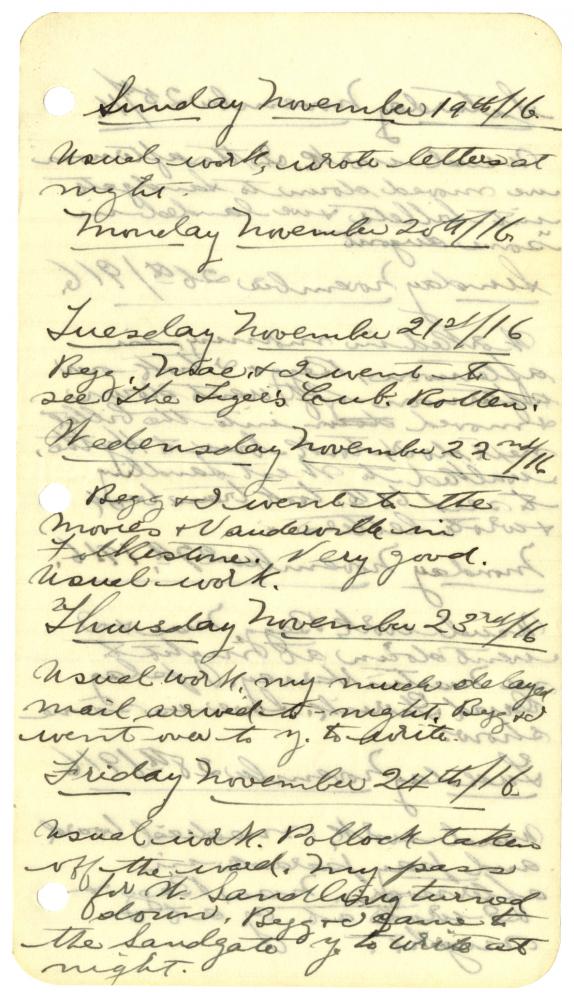 Sunday November 19th/16
Usual work, wrote letters at
night.
Monday November 20th/16
Tuesday November 21st/16
Begg, Mac, & I went to
see The Tiger's Cub. Rotten.
Wedensday November 22nd/16
Begg & I went to the
movies & Vaudeville in
Folkestone. Very good.
Usual work.
Thursday November 23rd/16
Usual work, my much delayed
mail arrived to-night, Begg & I
went over to y. to write.
Friday November 24th/16
Usual work. Pollock taken
off the ward. My pass
for W. Sandling turned
down. Begg & I came to
the Sandgate y. to write at
night.